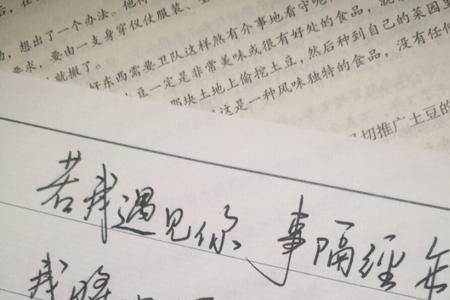 想出了一个办法。他
要求,要由一支身穿仪仗服装、全
就撤了。
好东西需要卫队这样煞有介事地看守呢
豆一定是非常美味或很有好处的食品,就
那块土地上偷挖土豆,然后种到自己的菜园里
这是一种风味独特的食品,没有任何
切推广土豆的
若我遇见你 事隔经年
我将